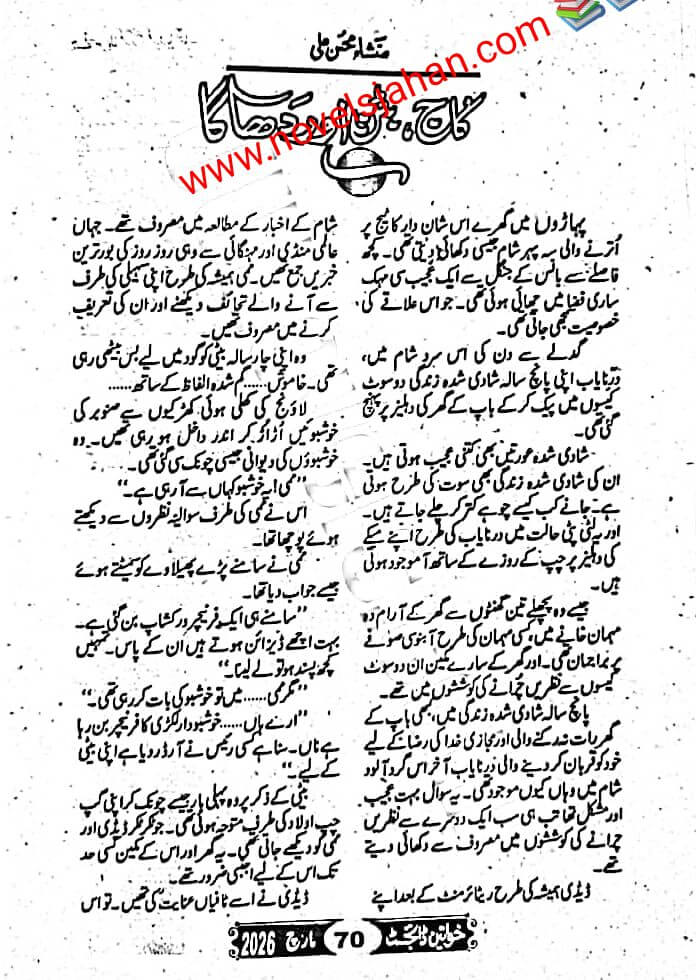 منشاء محسن علی
کانچ،
دھاگا
www.novelsjahan.com
پہاڑوں میں گھرے اس شان دار کاٹیج پر
اُترنے والی سہ پہر شام جیسی دکھائی دیتی تھی۔ کچھ
فاصلے سے بانس کے جنگل سے ایک عجیب سی مہک
ساری فضا میں چھائی ہوئی تھی۔ جو اس علاقے کی
خصوصیت سمجھی جاتی تھی۔
گدلے سے دن کی اس سرد شام میں،
درنایاب اپنی پانچ سالہ شادی شدہ زندگی دو سوٹ
کیسوں میں پیک کر کے باپ کے گھر کی دہلیز پر پہنچ
گئی تھی۔
شادی شدہ عورتیں بھی کتنی عجیب ہوتی ہیں۔
ان کی شادی شدہ زندگی بھی سوت کی طرح ہوتی
ہے۔ جانے کب کیسے چوہے کتر کر چلے جاتے ہیں۔
اور یہ لٹی پٹی حالت میں درنایاب کی طرح اپنے میکے
کی دہلیز پر چپ کے روزے کے ساتھ آ موجود ہوتی
ہیں۔
جیسے وہ پچھلے تین گھنٹوں سے گھر کے آرام دہ
مہمان خانے میں، کسی مہمان کی طرح آبنوسی صوفے
پر براجمان تھی۔ اور گھر کے سارے مکین ان دو سوٹ
کیسوں سے نظریں چُرانے کی کوششوں میں تھے۔
پانچ سالہ شادی شدہ زندگی میں، کبھی باپ کے
گھر رات نہ رکنے والی اور مجازی خدا کی رضا کے لیے
خود کو قربان کر دینے والی درنایاب آخر اس گرد آلود
شام میں وہاں کیوں موجود تھی۔ یہ سوال بہت عجیب
اور مشکل تھا تب ہی سب ایک دوسرے سے نظریں
چرانے کی کوششوں میں مصروف سے دکھائی دیتے
تھے۔
ڈیڈی ہمیشہ کی طرح ریٹائرمنٹ کے بعد اپنے
شام کے اخبار کے مطالعہ میں مصروف تھے۔ جہاں
عالمی منڈی اور مہنگائی سے وہی روز روز کی بور ترین
خبریں جمع تھیں۔ ممی ہمیشہ کی طرح اپنی سہیلی کی طرف
سے آنے والے تحائف دیکھنے اور ان کی تعریف
کرنے میں مصروف تھیں۔
وہ اپنی چار سالہ بیٹی کو گود میں لیے بس بیٹھی رہی
تھی۔ خاموش...... گم شدہ الفاظ کے ساتھ......
لاؤنج کی کھلی ہوئی کھڑکیوں سے صنوبر کی
خوشبوئیں اُڑ اُڑ کر اندر داخل ہو رہی تھیں۔ وہ
خوشبوؤں کی دیوانی جیسی چونک سی گئی تھی۔
”ممی! یہ خوشبو کہاں سے آ رہی ہے۔“
اس نے ممی کی طرف سوالیہ نظروں سے دیکھتے
ہوئے پوچھا تھا۔
ممی نے سامنے پڑے پھیلاوے کو سمیٹتے ہوئے
جیسے جواب دیا تھا۔
”سامنے ہی ایک فرنیچر ورکشاپ بن گئی ہے۔
بہت اچھے ڈیزائن ہوتے ہیں ان کے پاس۔ تمہیں
کچھ پسند ہو تو لے لینا۔“
”مگر ممی...... میں تو خوشبو کی بات کر رہی تھی۔“
”ارے ہاں...... خوشبودار لکڑی کا فرنیچر بن رہا
ہے ناں۔ سنا ہے کسی رئیس نے آرڈر دیا ہے اپنی بیٹی
کے لیے۔“
بیٹی کے ذکر پر وہ پہلی بار جیسے چونک کر اپنی گپ
چپ اولاد کی طرف متوجہ ہوئی تھی۔ جو ٹکر ٹکر ڈیڈی اور
ممی کو دیکھے جاتی تھی۔ یہ گھر اور اس کے مکین کسی حد
تک اس کے لیے اجنبی ضرور تھے۔
ڈیڈی نے اسے ٹافیاں عنایت کی تھیں۔ تو اس
خواتین ڈائجسٹ 70 مارچ 2026